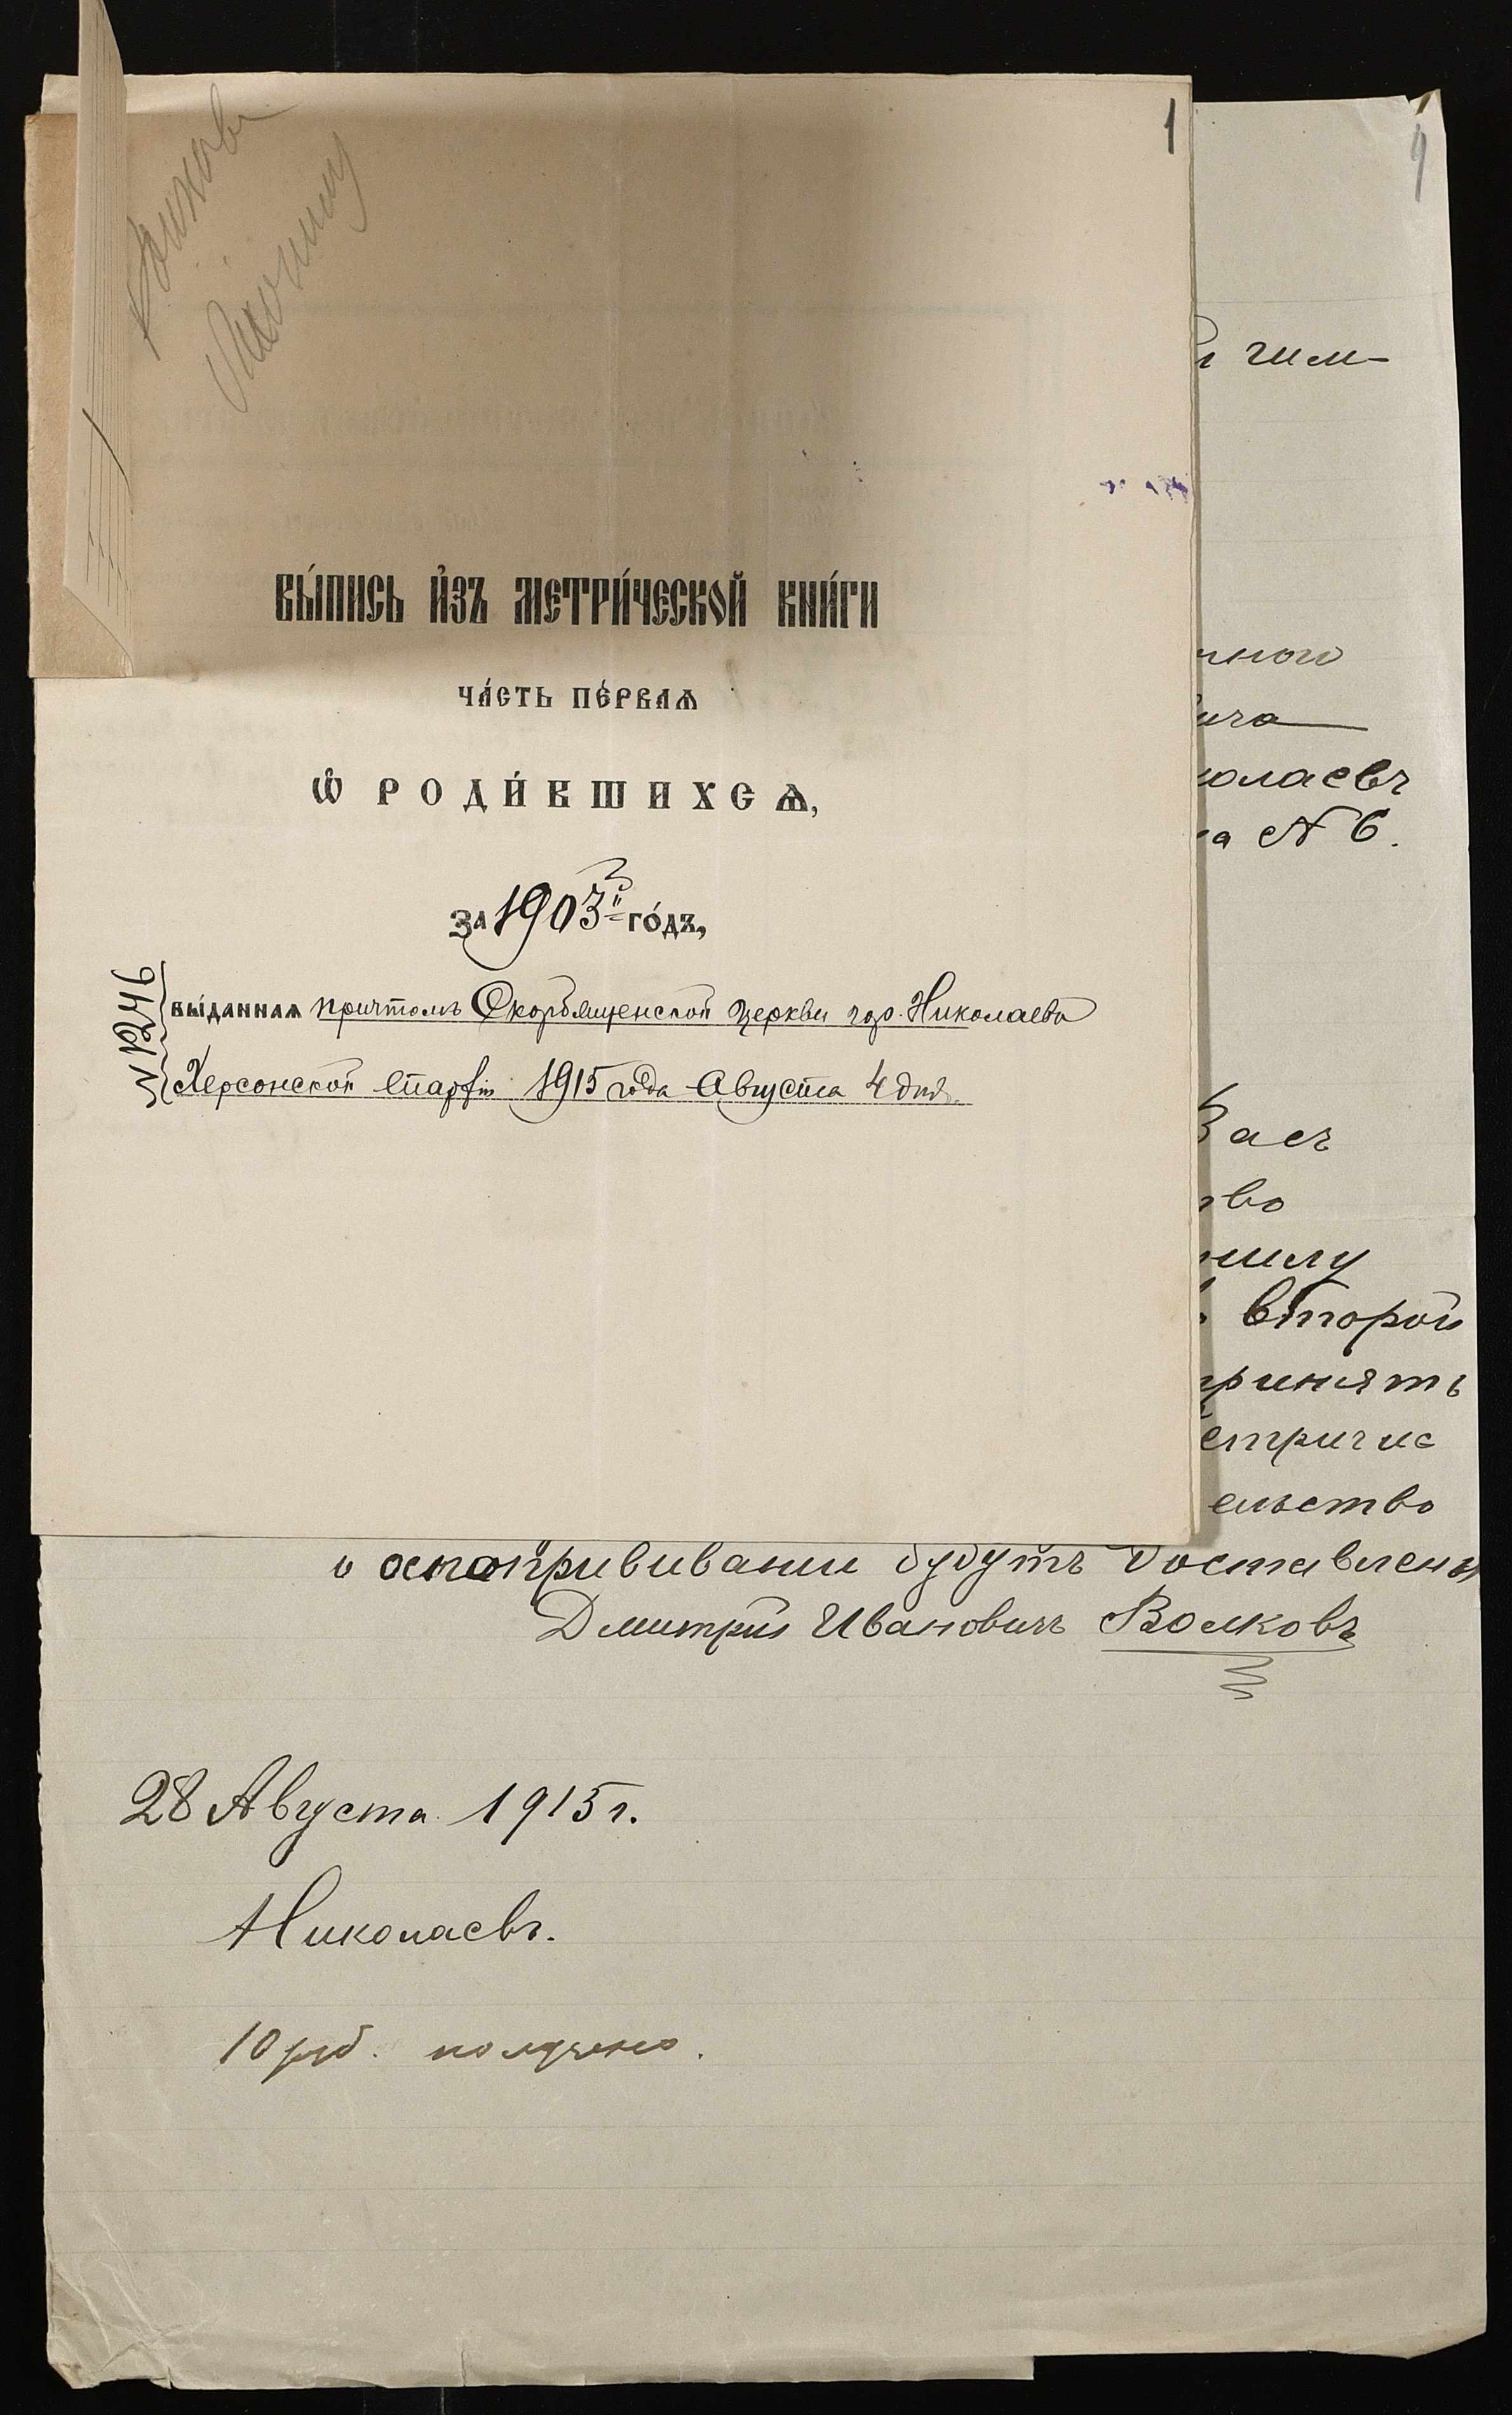 1
ВЫ́ПИСЬ И҆ЗЪ МЕТРИ́ЧЕСКОЙ КНИ́ГИ
ЧА́СТЬ ПЕ́РВАѦ
Ѡ҆ РОДИ́ВШИХСѦ,
ЗА 1903й ГО́ДЪ,
№ 1246
ВЫ́ДАННАѦ причтомъ Скорбященской церкви гор. Николаева
Херсонской епархіи 1915 года Августа 4 дня.
гим-
чного
ича
колаевъ
№ 6.
Васъ
второй
принять
етричес
ельство
и оспопрививании будутъ доставлены
Дмитрий Ивановичъ Волковъ
28 Августа 1915 г.
Николаевъ.
10 руб. получено.